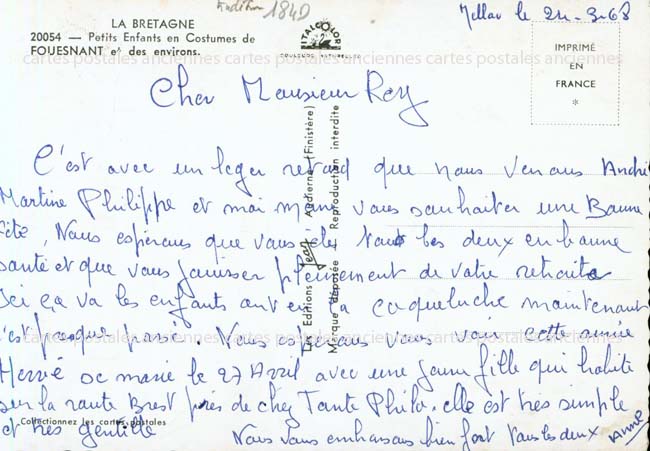 LA BRETAGNE
20054 — Petits Enfants en Costumes de
FOUESNANT et des environs.
Tradition 1840
ITALCOLOR
COULEURS NATURELLES
Mellac le 24-3-68
IMPRIMÉ
EN
FRANCE
*
Cher Monsieur Rey
C'est avec un leger retard que nous venons André
Martine Philippe et moi même vous souhaiter une Bonne
Fête, Nous espérons que vous êtes tous les deux en bonne
santé et que vous jouissez pleinement de votre retraite
Ici ça va les enfants ont eu la coqueluche maintenant
c'est presque passé. Nous espérons vous voir cette année
Hervé se marie le 27 Avril avec une jeune fille qui habite
sur la route Brest près de chez Tante Philo. elle est très simple
et très gentille
Nous vous embrassons bien fort tous les deux Anne
Les Éditions Jos, Audierne (Finistère)
Marque déposée — Reproduction interdite
Collectionnez les cartes postales
cartes postales anciennes cartes postales anciennes cartes postales anciennes
cartes postales anciennes cartes postales anciennes cartes postales anciennes